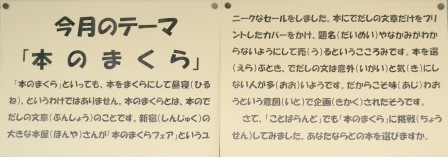 今月のテーマ
「本のまくら」
「本のまくら」といっても、本をまくらにして昼寝（ひる
ね）、というわけではありません。本のまくらとは、本ので
だしの文章（ぶんしょう）のことです。新宿（しんじゅく）の
大きな本屋（ほんや）さんが「本のまくらフェア」というユ
ニークなセールをしました。本にでだしの文章だけをプリ
ントしたカバーをかけ、題名（だいめい）やなかみがわか
らないようにして売（う）るというこころみです。本を選
（えら）ぶとき、でだしの文は意外（いがい）と気（き）にし
ない人が多（おお）いようです。だからこそ味（あじ）わお
うという意図（いと）で企画（きかく）されたそうです。
さて、「ことばらんど」でも「本のまくら」に挑戦（ちょう
せん）してみました。あなたならどの本を選びますか。